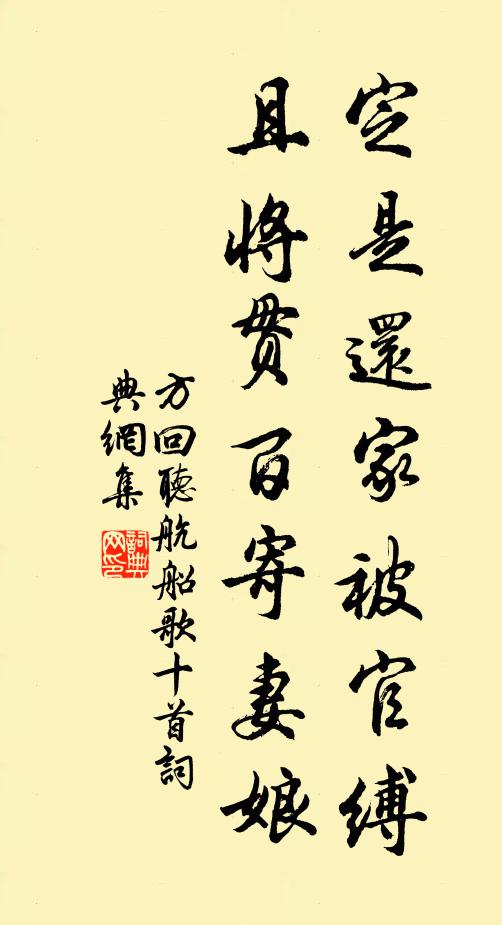 定是還家被官縛
且將貫百寄妻娘
方回聽航船歌十首詞
典網集
詞典
网印